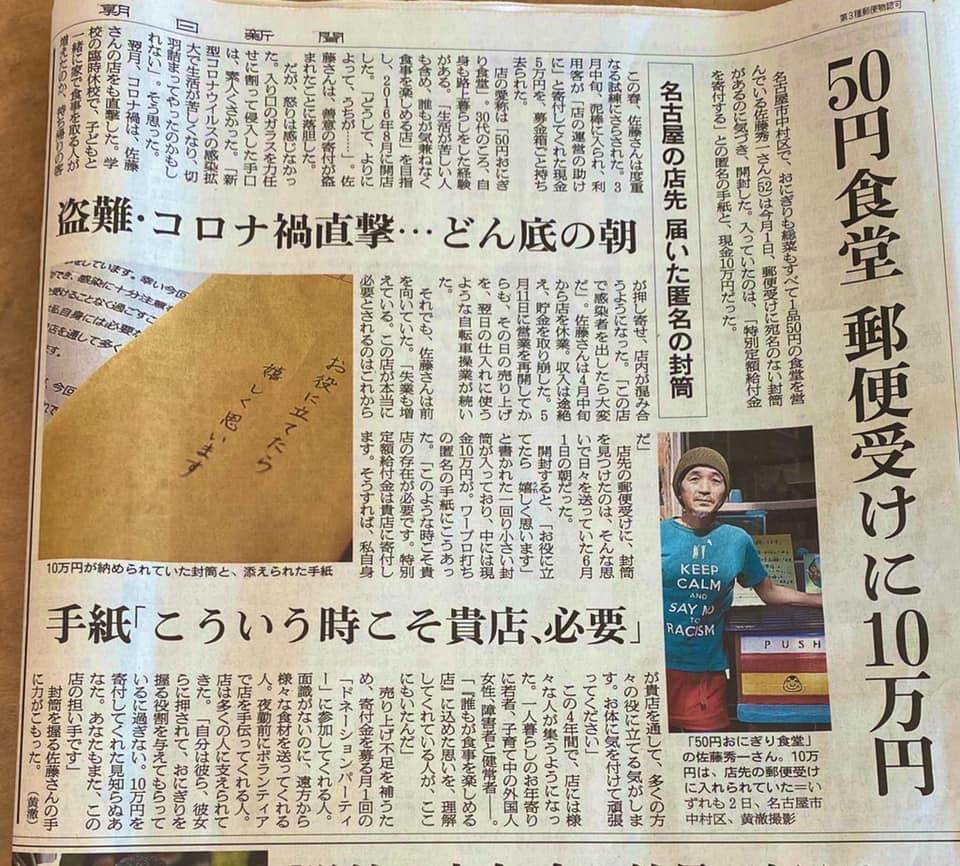 朝日新聞
第3種郵便物認可
50円食堂 郵便受けに10万円
名古屋の店先 届いた匿名の封筒
名古屋市中村区で、おにぎりも総菜もすべて1品50円の食堂を営
んでいる佐藤秀一さん(52)は今月1日、郵便受けに宛名のない封筒
があるのに気づき、開封した。入っていたのは、「特別定額給付金
を寄付する」との匿名の手紙と、現金10万円だった。
この春、佐藤さんは度重
なる試練にさらされた。3
月中旬、泥棒に入られ、利
用客が「店の運営の助け
に」と寄付してくれた現金
5万円を、募金箱ごと持ち
去られた。
店の愛称は「50円おにぎ
り食堂」。30代のころ、自
身も路上暮らしをした経験
がある。「生活が苦しい人
も含め、誰もが気兼ねなく
食事を楽しめる店」を目指
し、2016年8月に開店
した。「どうして、よりに
よって、うちが……」。佐
藤さんは、善意の寄付が盗
まれたことに落胆した。
だが、怒りは感じなかっ
た。入り口のガラスを力任
せに割って侵入した手口
は、素人くさかった。「新
型コロナウイルスの感染拡
大で生活が苦しくなり、切
羽詰まってやったのかもし
れない」。そう思った。
翌月、コロナ禍は、佐藤
さんの店をも直撃した。学
校の臨時休校で、子どもと
一緒に家で食事を取る人が
増えたのか、持ち帰りの客
盗難・コロナ禍直撃…どん底の朝
が押し寄せ、店内が混み合
うようになった。「この店
で感染者を出したら大変
だ」。佐藤さんは4月中旬
から店を休業。収入は途絶
え、貯金を取り崩した。5
月11日に営業を再開してか
らも、その日の売り上げ
を、翌日の仕入れに使う
ような自転車操業が続い
た。
それでも、佐藤さんは前
を向いていた。「失業も増
えている。この店が本当に
必要とされるのはこれから
だ」
店先の郵便受けに、封筒
を見つけたのは、そんな思
いで日々を送っていた6月
1日の朝だった。
開封すると、「お役に立
てたら 嬉しく思います」
と書かれた一回り小さい封
筒が入っており、中には現
金10万円が。ワープロ打ち
の匿名の手紙にこうあっ
た。「このような時こそ貴
店の存在が必要です。特別
定額給付金は貴店に寄付し
ます。そうすれば、私自身
お役に立てたら
嬉しく思います
10万円が納められていた封筒と、添えられた手紙
KEEP
CALM
AND
SAY NO
TO
RACISM
PUSH
「50円おにぎり食堂」
の佐藤秀一さん。10万
円は、店先の郵便受け
に入れられていた＝い
ずれも2日、名古屋市
中村区、黄澈撮影
手紙「こういう時こそ貴店、必要」
が貴店を通して、多くの方
々の役に立てる気がしま
す。お体に気を付けて頑張
ってください」
この4年間で、店には様
々な人が集うようになっ
た。一人暮らしのお年寄り
に若者、子育て中の外国人
女性、障害者と健常者――。
「『誰もが食事を楽しめる
店』に込めた思いを、理解
してくれている人が、ここ
にもいたんだ」
売り上げ不足を補うた
め、寄付金を募る月1回の
「ドネーションパーティ
ー」に参加してくれる人。
面識がないのに、遠方から
様々な食材を送ってくれる
人。夜勤前にボランティア
で店を手伝ってくれる人。
店は多くの人に支えられて
きた。「自分は彼ら、彼女
らに押されて、おにぎりを
握る役割を与えてもらって
いるに過ぎない。10万円を
寄付してくれた見知らぬあ
なた。あなたもまた、この
店の担い手です」
封筒を握る佐藤さんの手
に力がこもった。（黄澈）